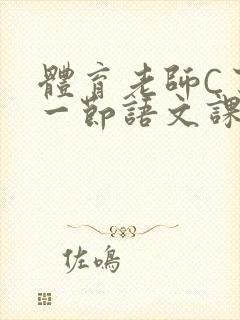 體育老師C
一節語文課
佐鳴